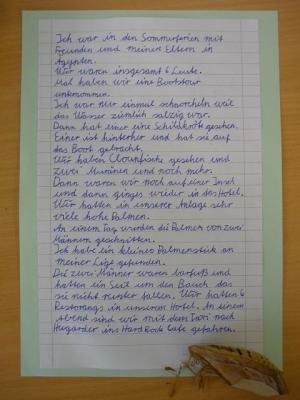 Ich war in den Sommerferien mit
Freunden und meinen Eltern in
Ägypten.
Wir waren insgesamt 6 Leute.
Mal haben wir eine Bootstour
unternommen.
Ich war nur einmal schnorcheln weil
das Wasser ziemlich salzig war.
Dann hat einer eine Schildkröte gesehen.
Einer ist hinterher und hat sie auf
das Boot gebracht.
Wir haben Clownfische gesehen und
zwei Muränen und noch mehr.
Dann waren wir noch auf einer Insel
und dann gings wieder in das Hotel.
Wir hatten in unserer Anlage sehr
viele hohe Palmen.
An einem Tag wurden die Palmen von zwei
Männern geschnitten.
Ich habe ein kleines Palmenstück an
meiner Lige gefunden.
Die zwei Männer waren barfuß und
hatten ein Seil um den Bauch das
sie nicht runter fallen. Wir hatten 6
Restorangs in unserem Hotel. An einem
Abend sind wir mit dem Taxi nach
Hugarder ins Hard Rock Cafe gefahren.